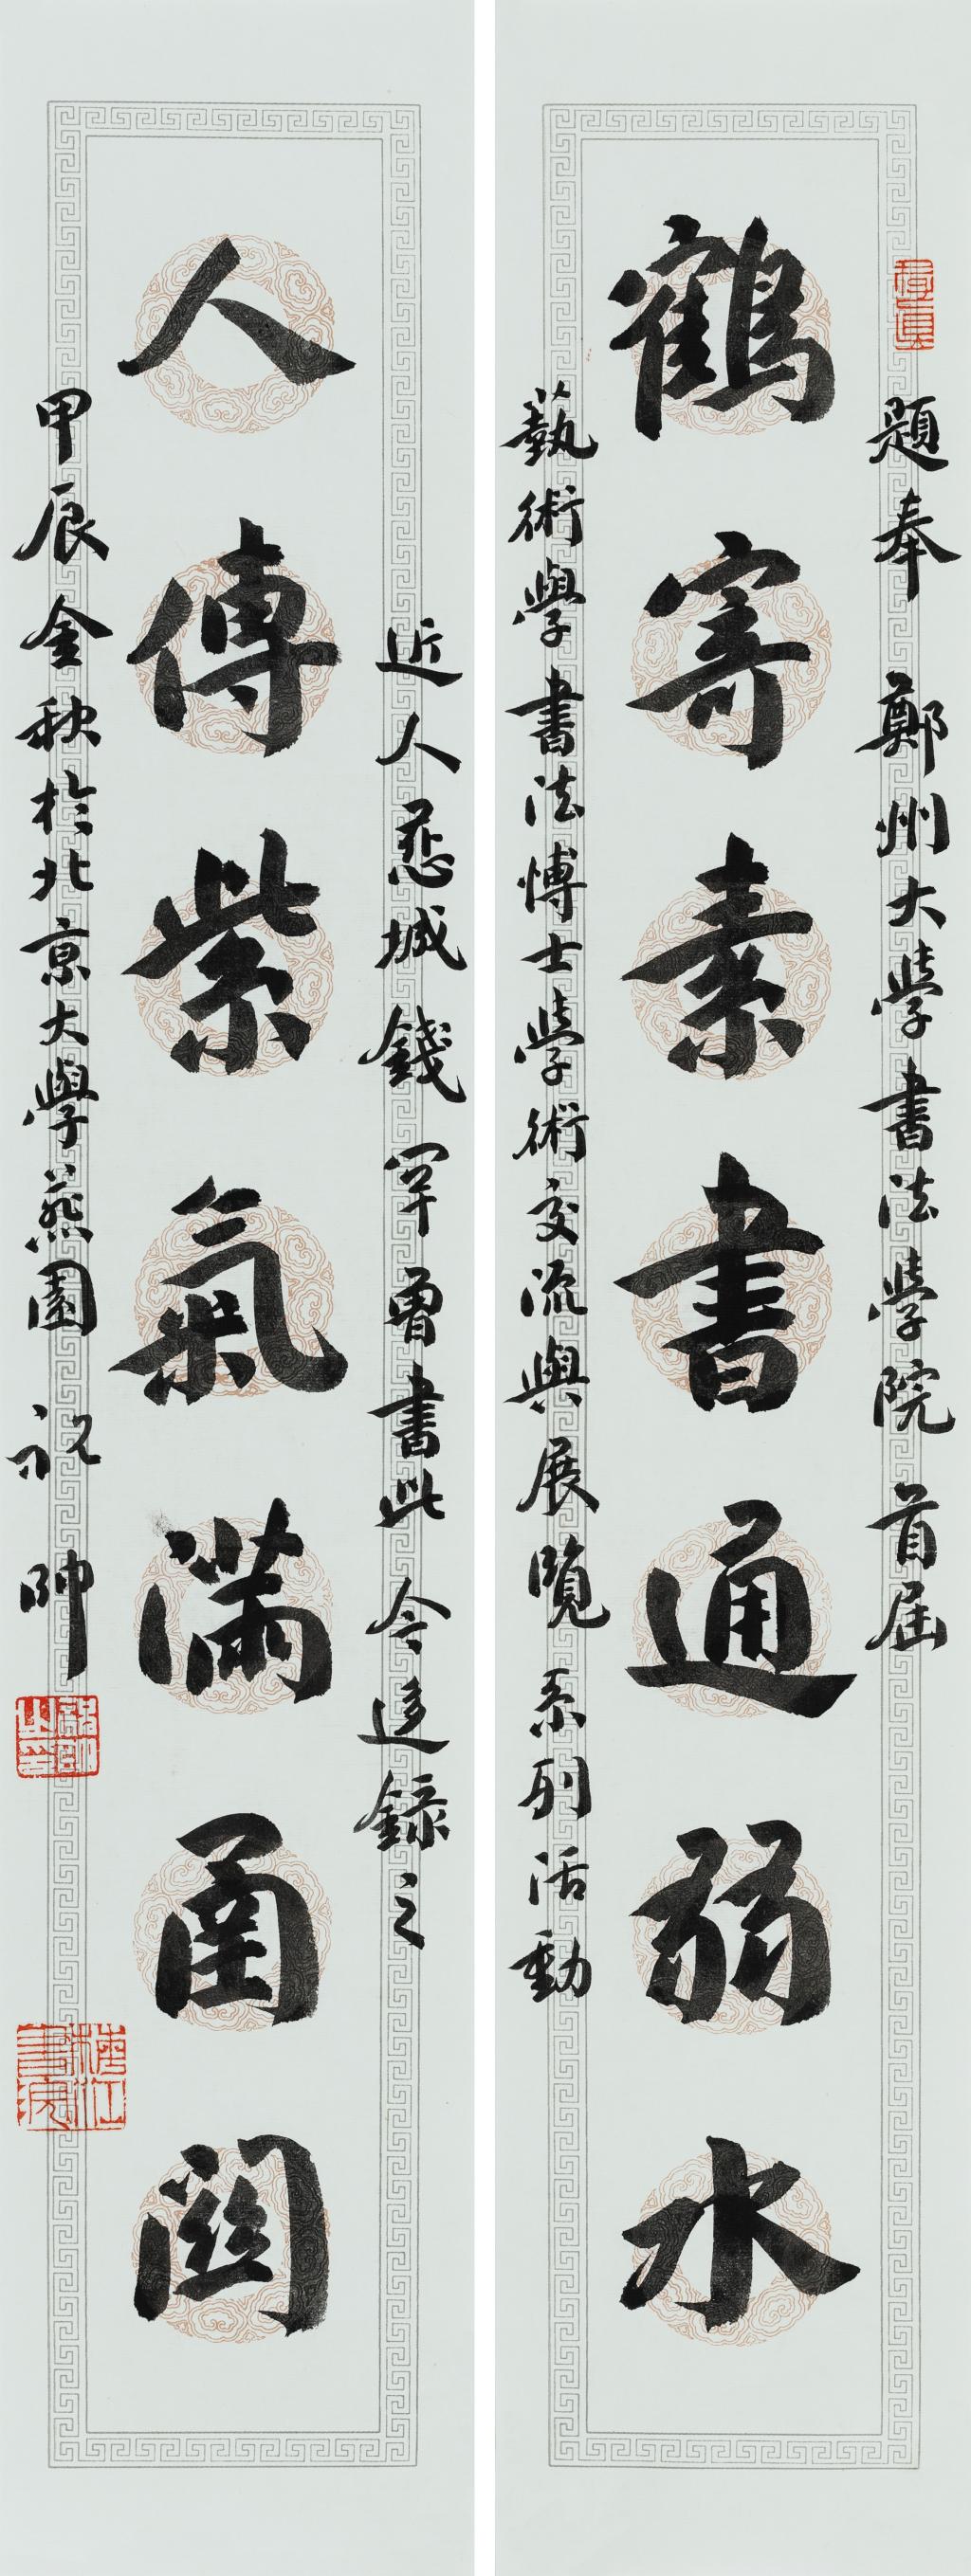 題奉 鄭州大學書法學院 首屆
鶴寄素書通弱水
藝術學書法博士學術交流與展覽 系列活動
近人慈城錢罕曾書此 今追錄之
人傳紫氣滿函關
甲辰金秋於北京大學燕園 祝帥
祝帥之印